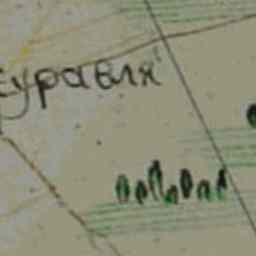 журавля